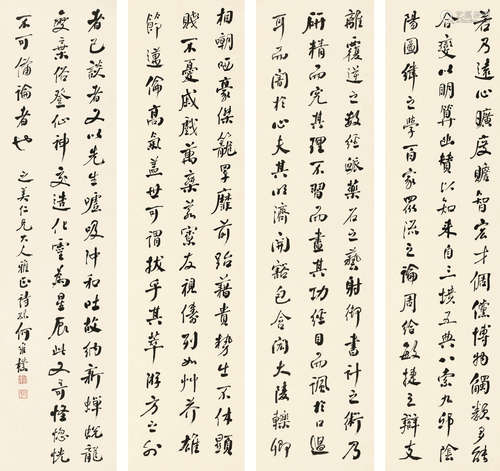 若乃遠心曠度贍智宏才倜儻博物觸類多能
合變以明算幽贊以知來自三墳五典八索九邱陰
陽圖緯之學百家眾流之論周給敏捷之辯支
離覆逆之數經脈藥石之藝射御書計之術乃
研精而究其理不習而盡其功經目而諷於口過
耳而闇於心夫其明濟開豁包含閎大陵轢卿
相嘲哂豪傑籠罩靡前跆藉貴勢出不休顯
賤不憂戚戲萬乘若寮友視儔列如草芥雄
節邁倫高氣蓋世可謂拔乎其萃游方之外
者已談者又以先生噓吸沖和吐故納新蟬蛻龍
變棄俗登仙神交造化靈為星辰此又奇怪惚恍
不可備論者也 之美仁兄大人雅正詩孫何維樸